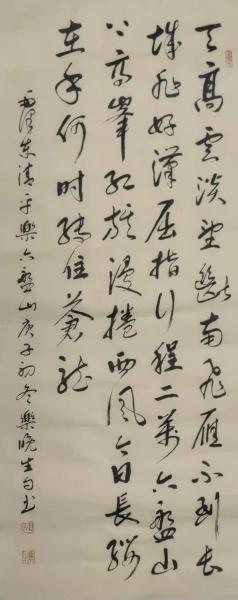 天高雲淡望斷南飛雁不到長
城非好漢屈指行程二萬六盤山
上高峯紅旗漫捲西風今日長纓
在手何时縛住蒼龍
毛澤東清平樂六盤山庚子初冬樂晚生書